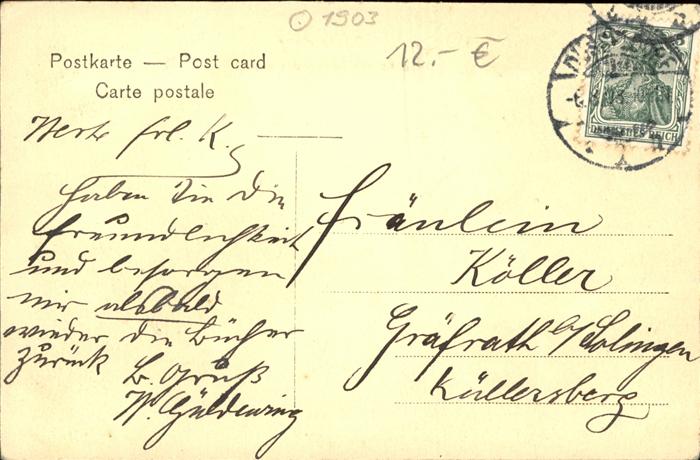 1903
12.- €
Postkarte — Post card
Carte postale
DEUTSCHES REICH
Werte Frl. K.
Haben Sie die
Freundlichkeit
und besorgen
mir alsbald
wieder die Bücher
zurück
B. Gruß
W. Güldenring
Fräulein
Köller
Gräfrath b/Solingen
Küllersberg